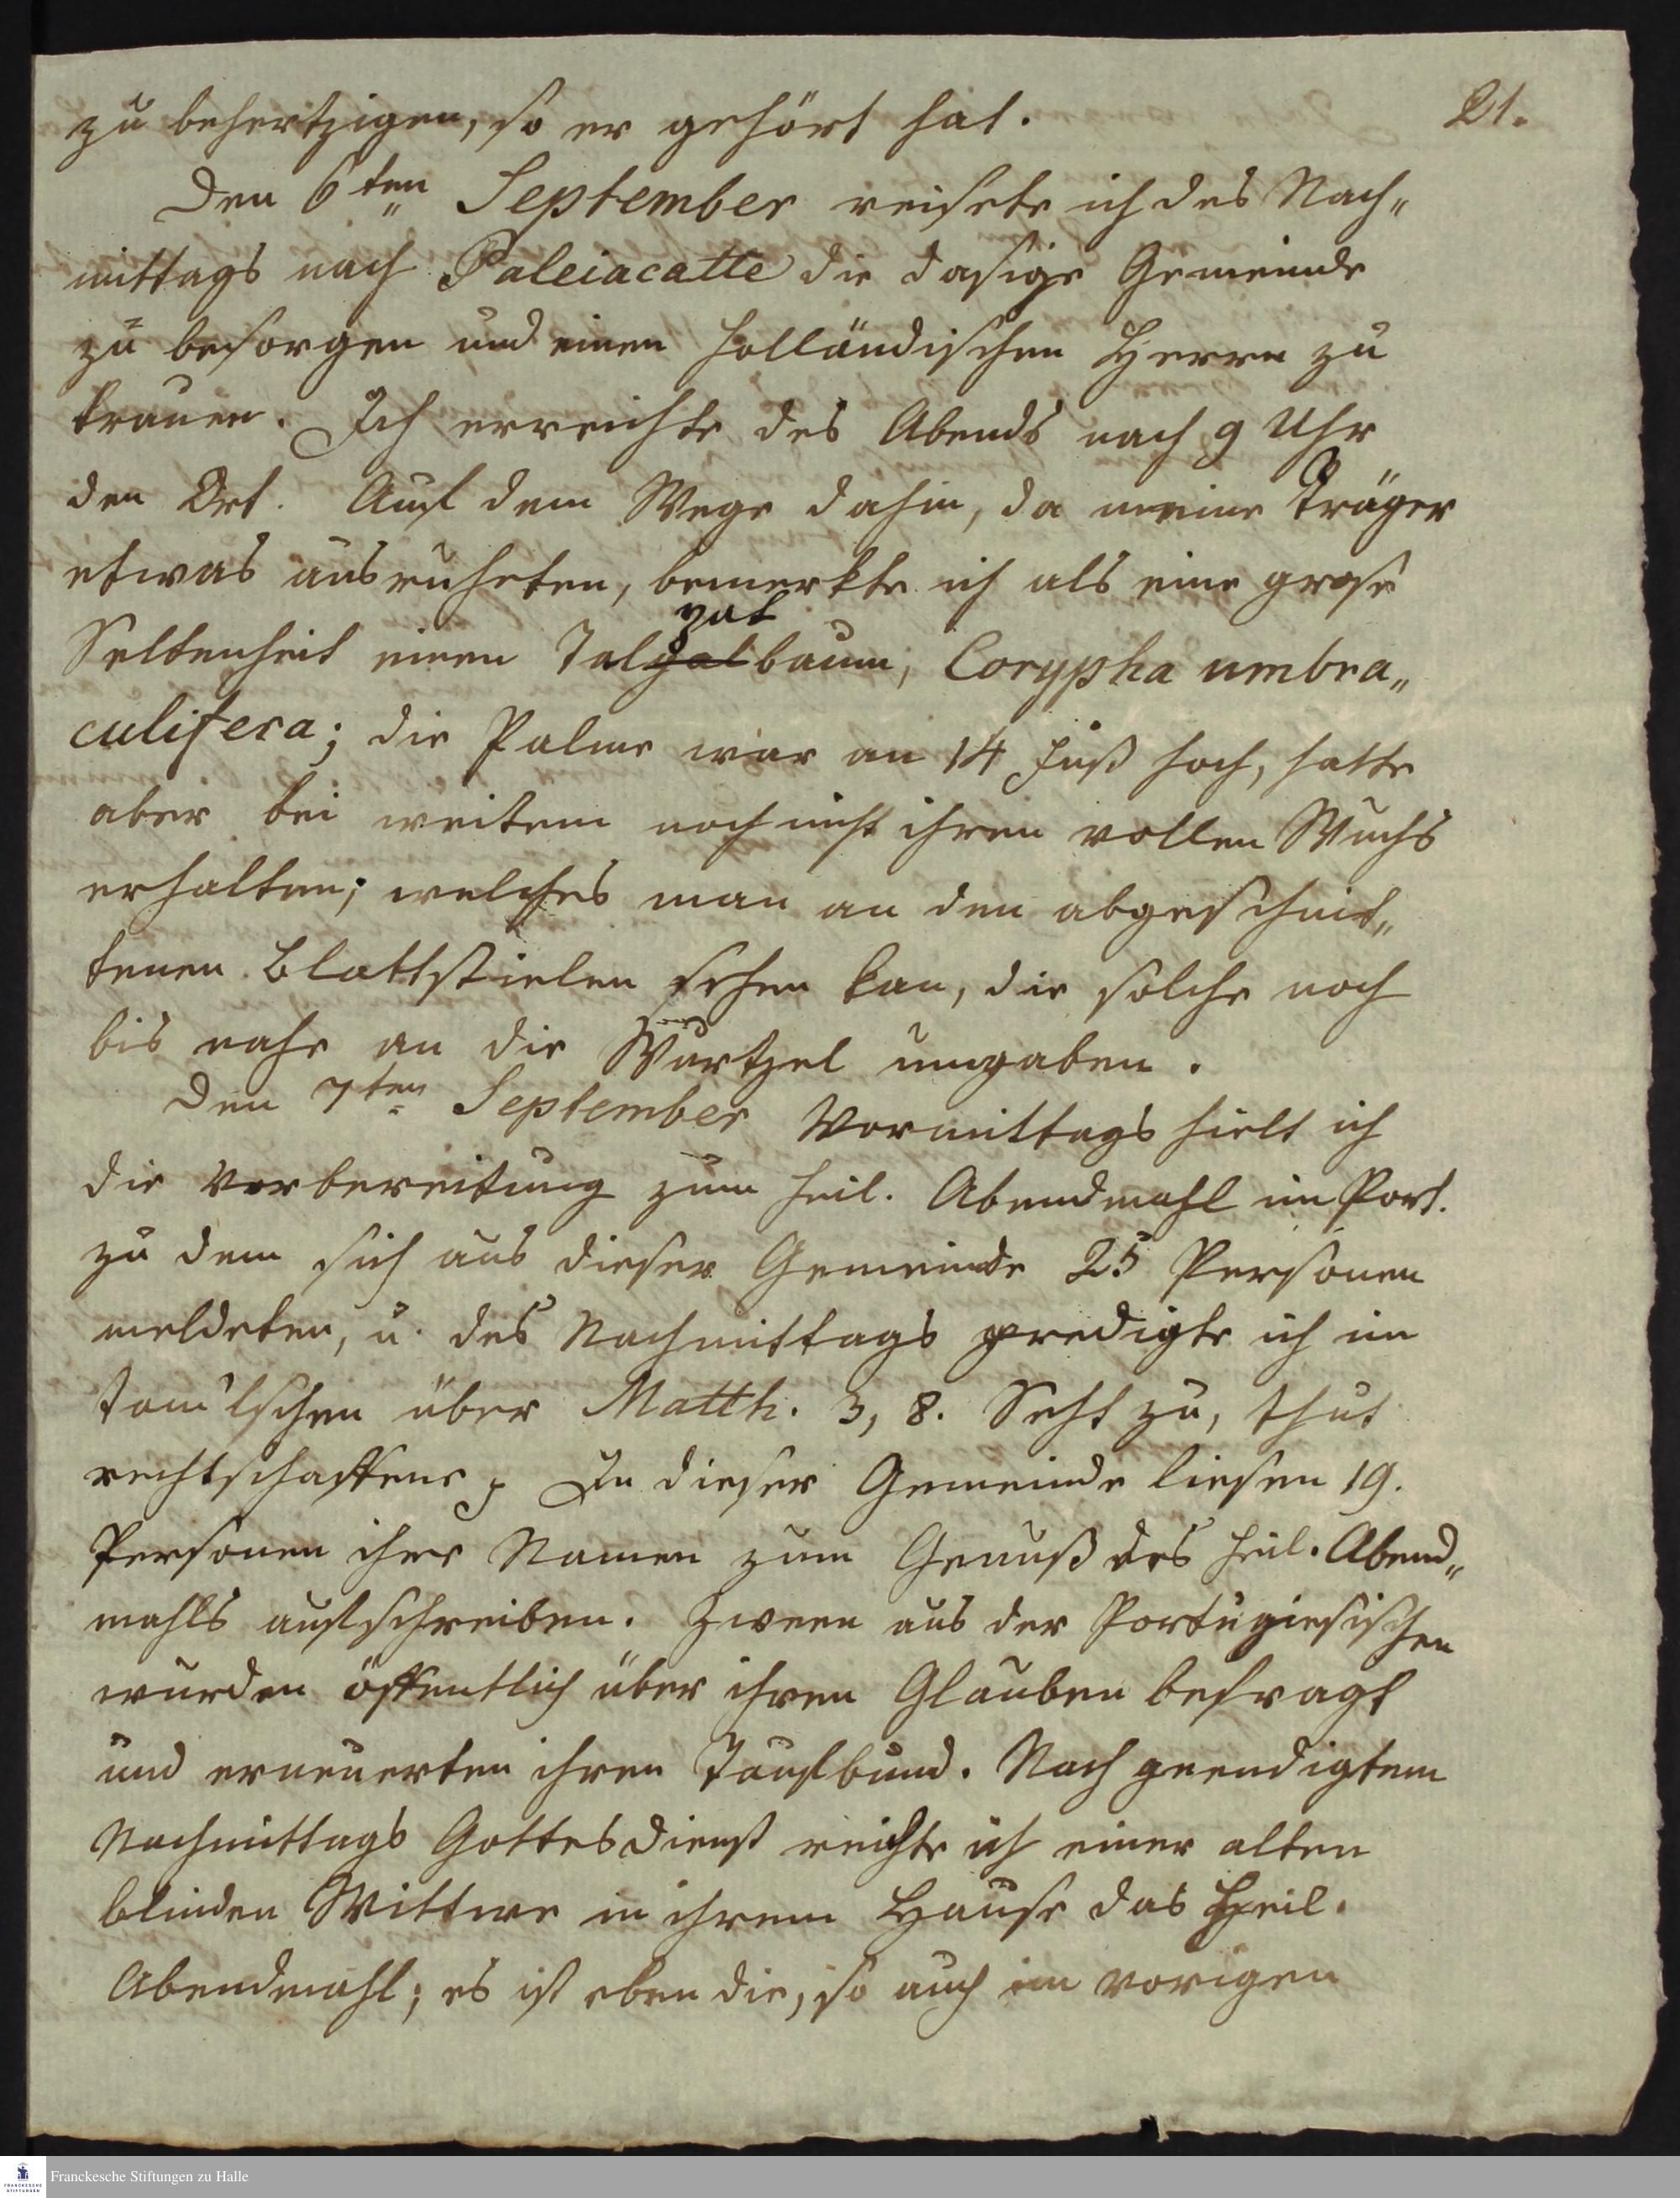 21.
zu behertzigen, so er gehört hat.
Den 6ten September reisete ich des Nach„
mittags nach Paleiacatte die dasige Gemeinde
zu besorgen und einen holländischen Herrn zu
trauen. Ich erreichte des Abends nach 9 Uhr
den Ort. Auf dem Wege dahin, da meine Träger
etwas ausruheten, bemerkte ich als eine grose
pat
Seltenheit einen Talgalbaum, Corypha umbra„
culifera; die Palme war an 14 Fuß hoch, hatte
aber bei weitem noch nicht ihren vollen Wuchs
erhalten; welches man an den abgeschnit„
tenen Blattstielen sehen kan, die solche noch
bis nahe an die Wurtzel umgaben.
Den 7ten September Vormittags hielt ich
die Vorbereitung zum heil. Abendmahl im Port.
zu dem sich aus dieser Gemeinde 25 Personen
meldeten, u. des Nachmittags predigte ich im
Tamulschen über Matth. 3, 8. Seht zu, thut
rechtschaffene p. In dieser Gemeinde liesen 19.
Personen ihre Namen zum Genuß des heil. Abend„
mahls aufschreiben. Zween aus der Portugiesischen
wurden öffentlich über ihren Glauben befragt
und erneuerten ihren Taufbund. Nach geendigtem
Nachmittags Gottesdienst reichte ich einer alten
blinden Wittwe in ihrem Hause das Heil.
Abendmahl; es ist eben die, so auch im vorigen
Franckesche Stiftungen zu Halle
FRANCKESCHE
STIFTUNGEN